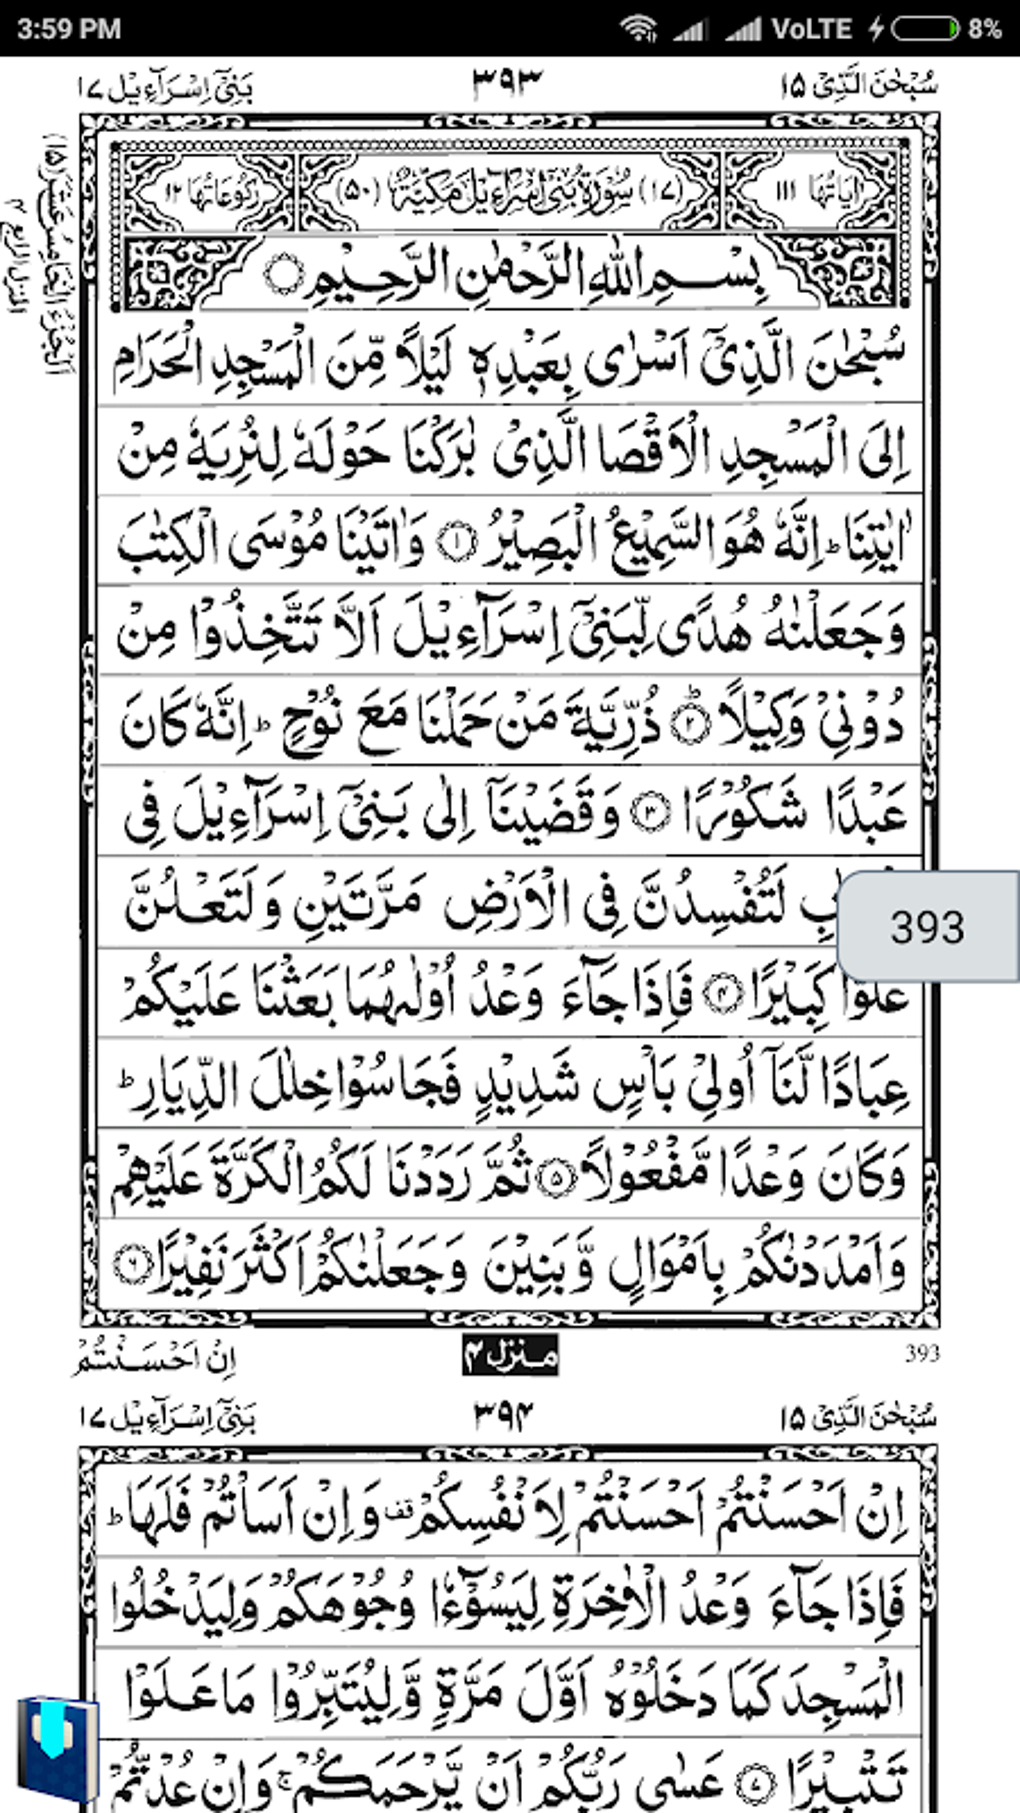 3:59 PM VoLTE 8%
سُبْحٰنَ الَّذِیْۤ ۱۵ ۳۹۳ بَنِیْۤ اِسْرَآءِیْل ۱۷
اٰیَاتُهَا ۱۱۱ (۱۷) سُوْرَةُ بَنِیْۤ اِسْرَآءِیْلَ مَكِّیَّةٌ (۵۰) رُكُوْعَاتُهَا ۱۲
اَلْجُزْءُ الْخَامِسُ عَشَرَ (۱۵)
المنزل الرابع ۴
بِسْمِ اللّٰهِ الرَّحْمٰنِ الرَّحِیْمِ ○
سُبْحٰنَ الَّذِیْۤ اَسْرٰی بِعَبْدِهٖ لَیْلًا مِّنَ الْمَسْجِدِ الْحَرَامِ
اِلَی الْمَسْجِدِ الْاَقْصَا الَّذِیْ بٰرَكْنَا حَوْلَهٗ لِنُرِیَهٗ مِنْ
اٰیٰتِنَا ؕ اِنَّهٗ هُوَ السَّمِیْعُ الْبَصِیْرُ ۱ وَاٰتَیْنَا مُوْسَی الْكِتٰبَ
وَجَعَلْنٰهُ هُدًی لِّبَنِیْۤ اِسْرَآءِیْلَ اَلَّا تَتَّخِذُوْا مِنْ
دُوْنِیْ وَكِیْلًا ؕ ۲ ذُرِّیَّةَ مَنْ حَمَلْنَا مَعَ نُوْحٍ ؕ اِنَّهٗ كَانَ
عَبْدًا شَكُوْرًا ۳ وَقَضَیْنَاۤ اِلٰی بَنِیْۤ اِسْرَآءِیْلَ فِی
لَتُفْسِدُنَّ فِی الْاَرْضِ مَرَّتَیْنِ وَلَتَعْلُنَّ
393
عُلُوًّا كَبِیْرًا ۴ فَاِذَا جَآءَ وَعْدُ اُوْلٰىهُمَا بَعَثْنَا عَلَیْكُمْ
عِبَادًا لَّنَاۤ اُولِیْ بَاْسٍ شَدِیْدٍ فَجَاسُوْا خِلٰلَ الدِّیَارِ ؕ
وَكَانَ وَعْدًا مَّفْعُوْلًا ۵ ثُمَّ رَدَدْنَا لَكُمُ الْكَرَّةَ عَلَیْهِمْ
وَاَمْدَدْنٰكُمْ بِاَمْوَالٍ وَّبَنِیْنَ وَجَعَلْنٰكُمْ اَكْثَرَ نَفِیْرًا ۶
393 منزل ۴ اِنْ اَحْسَنْتُمْ
سُبْحٰنَ الَّذِیْۤ ۱۵ ۳۹۴ بَنِیْۤ اِسْرَآءِیْل ۱۷
اِنْ اَحْسَنْتُمْ اَحْسَنْتُمْ لِاَنْفُسِكُمْ قف وَاِنْ اَسَاْتُمْ فَلَهَا ؕ
فَاِذَا جَآءَ وَعْدُ الْاٰخِرَةِ لِیَسُوْٓءٗا وُجُوْهَكُمْ وَلِیَدْخُلُوا
الْمَسْجِدَ كَمَا دَخَلُوْهُ اَوَّلَ مَرَّةٍ وَّلِیُتَبِّرُوْا مَا عَلَوْا
تَتْبِیْرًا ۷ عَسٰی رَبُّكُمْ اَنْ یَّرْحَمَكُمْ ۚ وَاِنْ عُدْتُّمْ